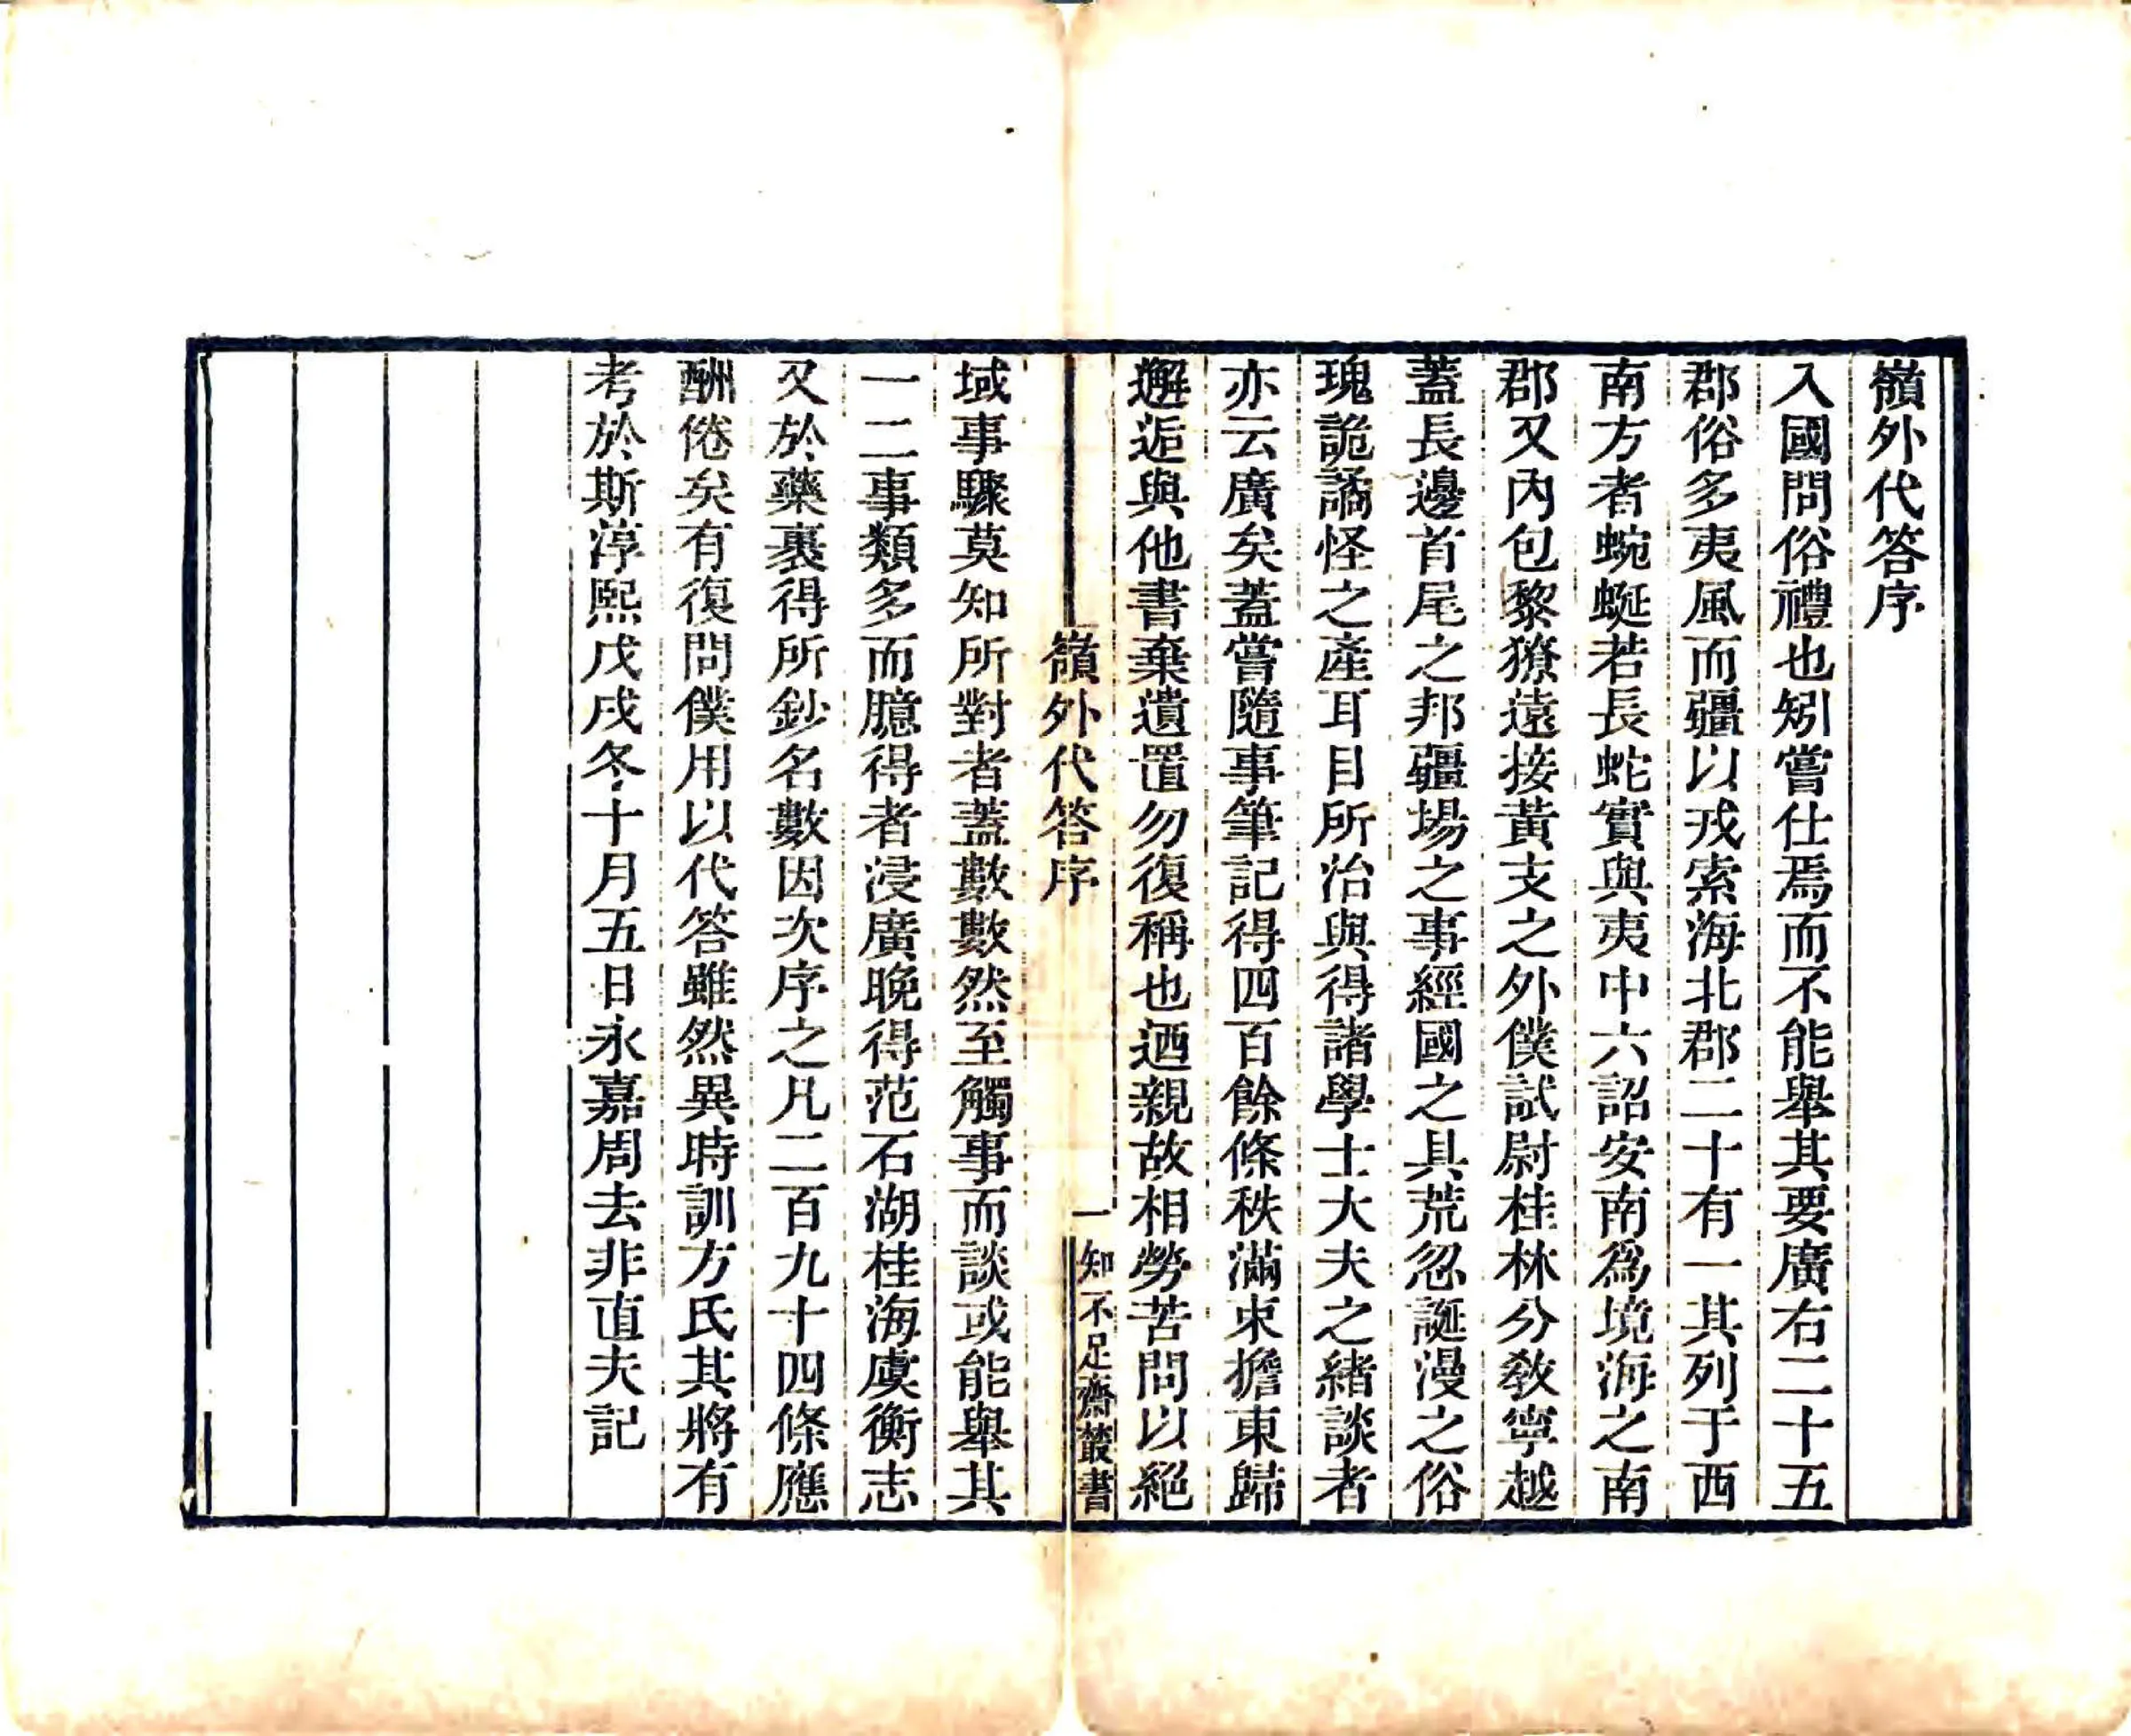 嶺外代答序
入國問俗禮也矧嘗仕焉而不能舉其要廣右二十五
郡俗多夷風而疆以戎索海北郡二十有一其列于西
南方者蜿蜒若長蛇實與夷中六詔安南爲境海之南
郡又內包黎獠遠接黃支之外僕試尉桂林分敎寧越
蓋長邊首尾之邦疆場之事經國之具荒忽誕漫之俗
瑰詭譎怪之產耳目所治與得諸學士大夫之緒談者
亦云廣矣蓋嘗隨事筆記得四百餘條秩滿束擔東歸
邂逅與他書棄遺置勿復稱也迺親故相勞苦問以絕
嶺外代答序
一
知不足齋叢書
域事驟莫知所對者蓋數數然至觸事而談或能舉其
一二事類多而臆得者浸廣晚得范石湖桂海虞衡志
又於藥裹得所鈔名數因次序之凡二百九十四條應
酬倦矣有復問僕用以代答雖然異時訓方氏其將有
考於斯淳熙戊戌冬十月五日永嘉周去非直夫記